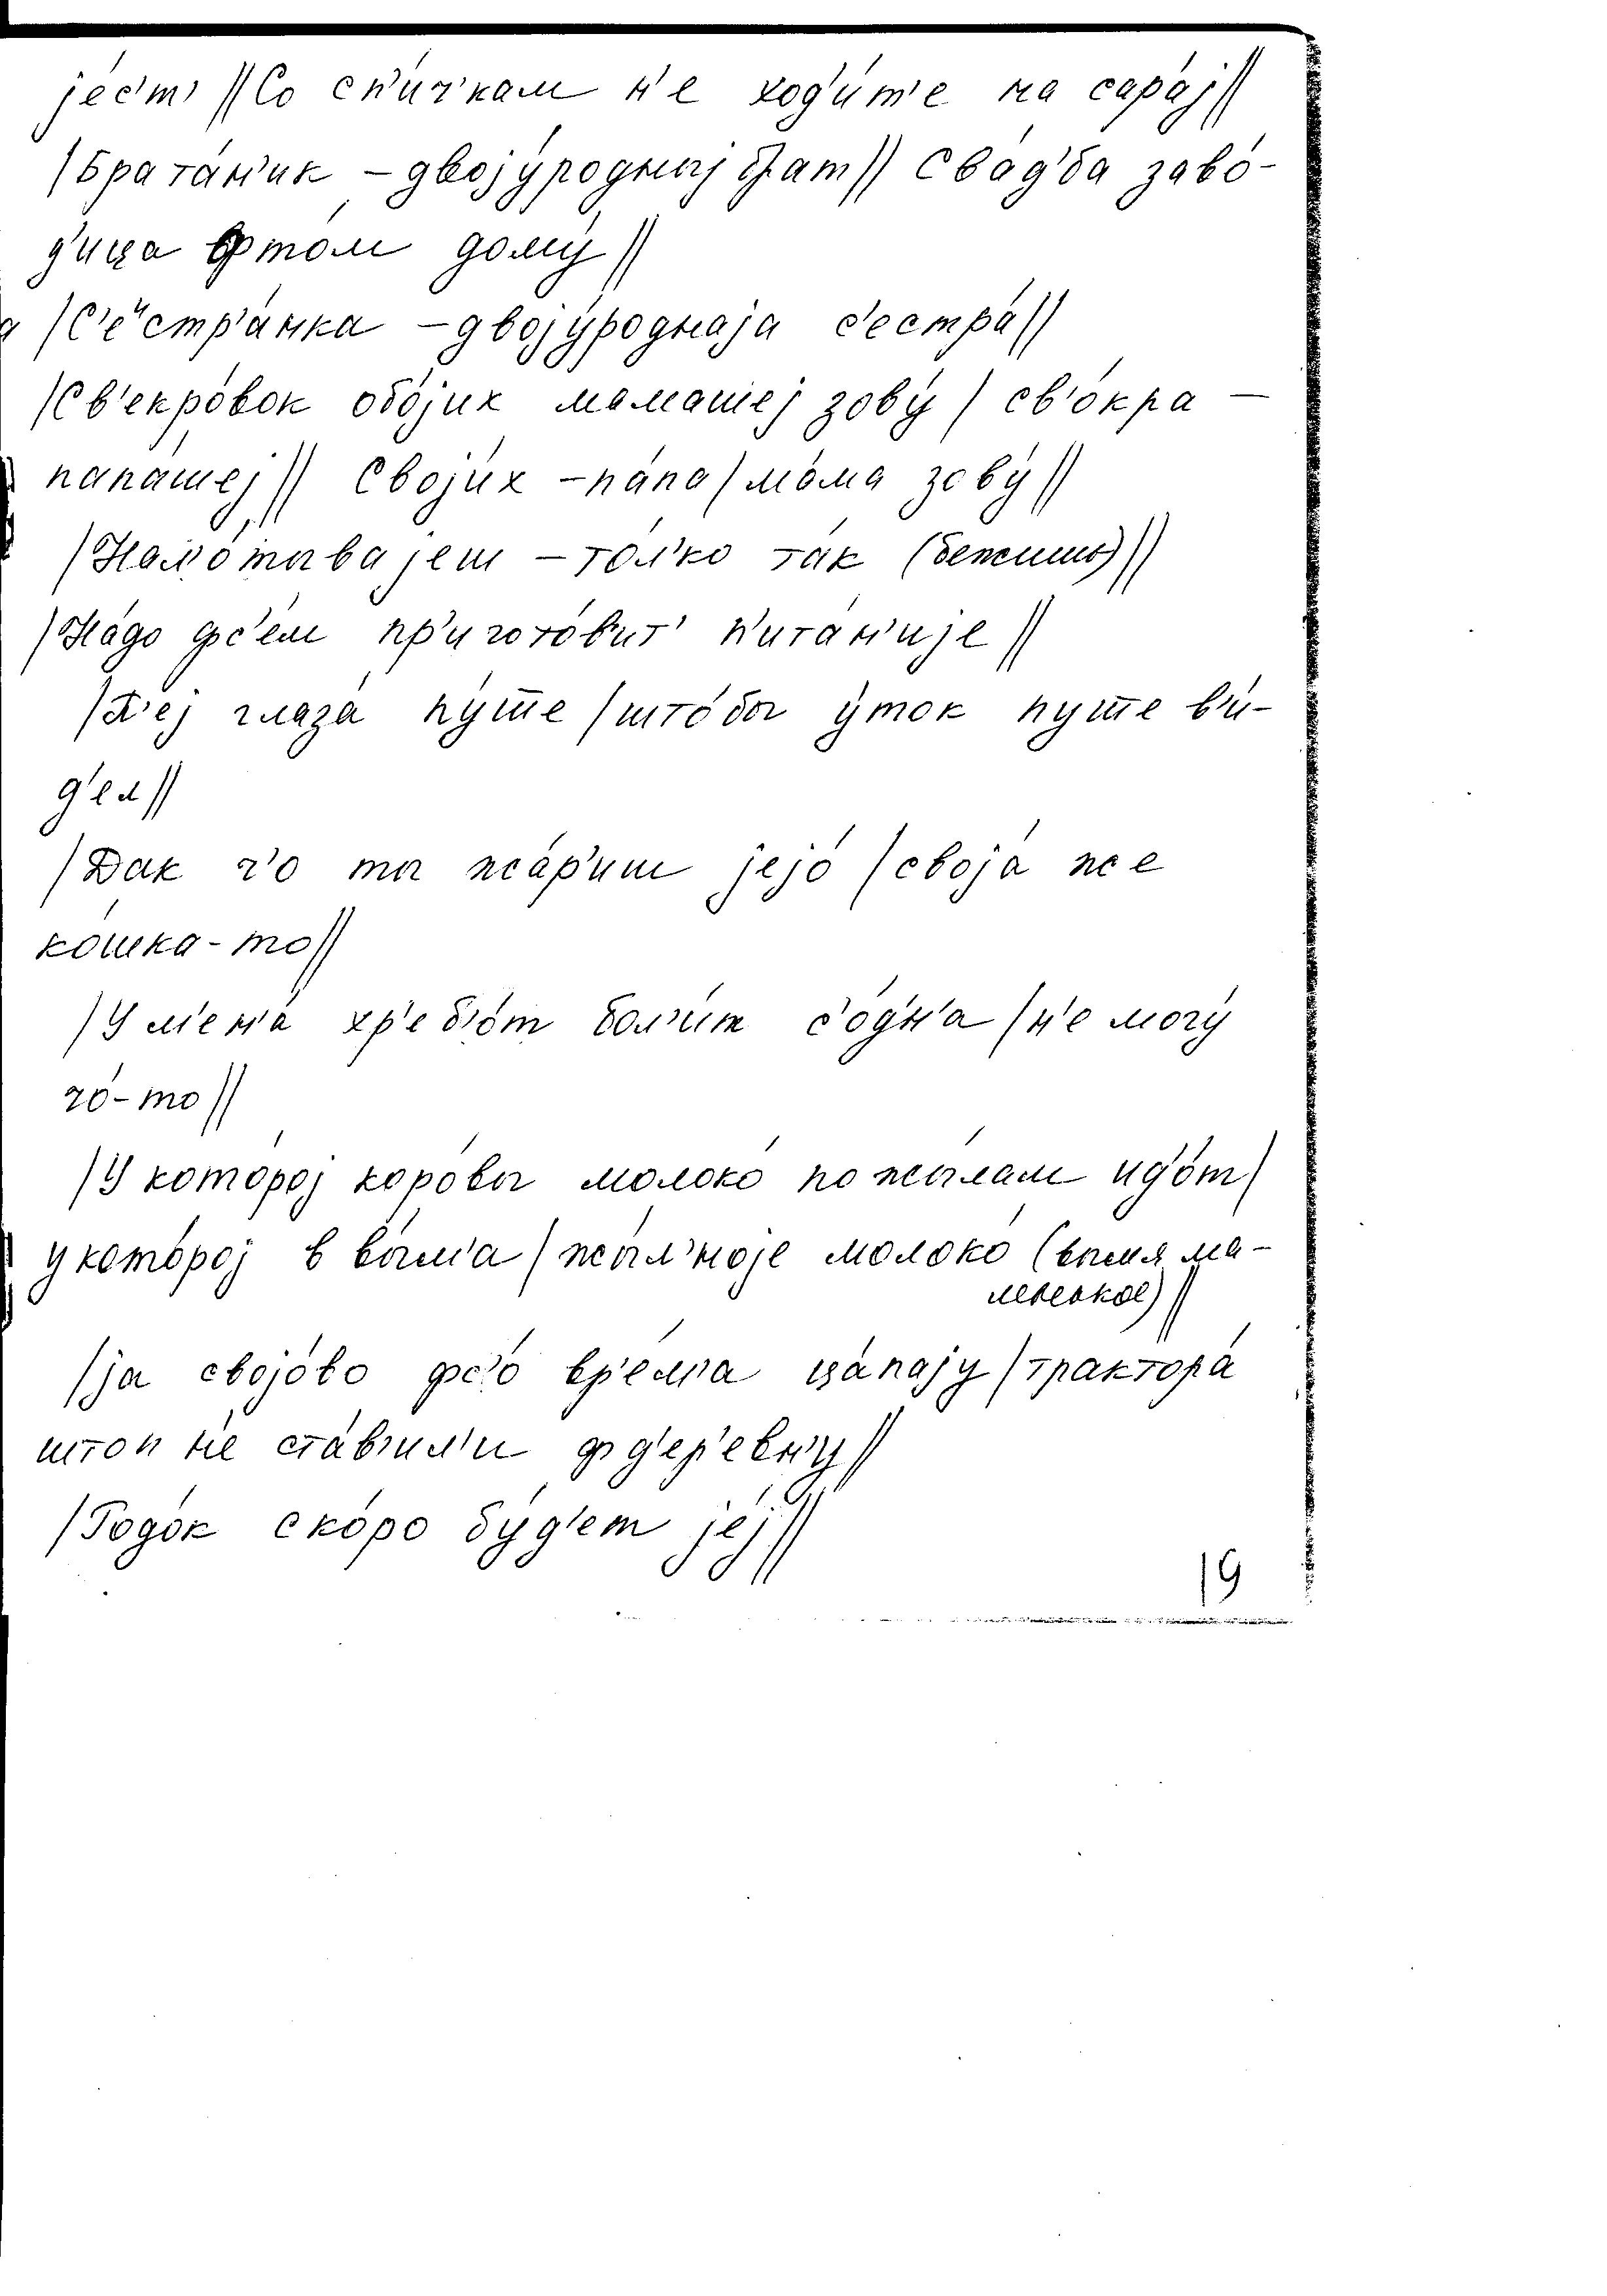 jес'т' // Со сп'и́ч'кам н'е ход'и́т'е на сара́j //
/ Брата́н'ик – двоjу́родныj брат // Сва́д'ба заво́-
д'ица ф том дому́ //
/ С'е́стр'а́нка – двоjу́роднаjа с'естра́ //
/ Св'екро́вок обо́jих мама́шеj зову́ / св'о́кра –
папа́шеj // Своjи́х – па́па / ма́ма зову́ //
/ Нам'о́тываjеш – то́л'ко так (бежишь) //
/ На́до фс'ем пр'игото́вит' п'ита́н'иjе //
/ П'еj глаза́ пу́т̅е / што́бы у́ток пу́т̅е в'и́-
д'ел //
/ Дак ч'о ты жа́р'иш jеjо́ / своjа́ же
ко́шка-то //
/ У м'ен'а́ хр'еб'о́т бол'и́т с'о́дн'а / н'е могу́
ч'о́-то //
/ У кото́роj коро́вы молоко́ по жы́лам ид'о́т /
у кото́роj в вы́м'а / жы́л'ноjе молоко́ (вымя ма-
ленькое) //
/ jа своjово́ фс'о вр'е́м'а ца́паjу / трактора́
штоп н'е ста́в'ил'и ф д'ер'е́вн'у //
/ Годо́к ско́ро бу́д'ет jеj //
19